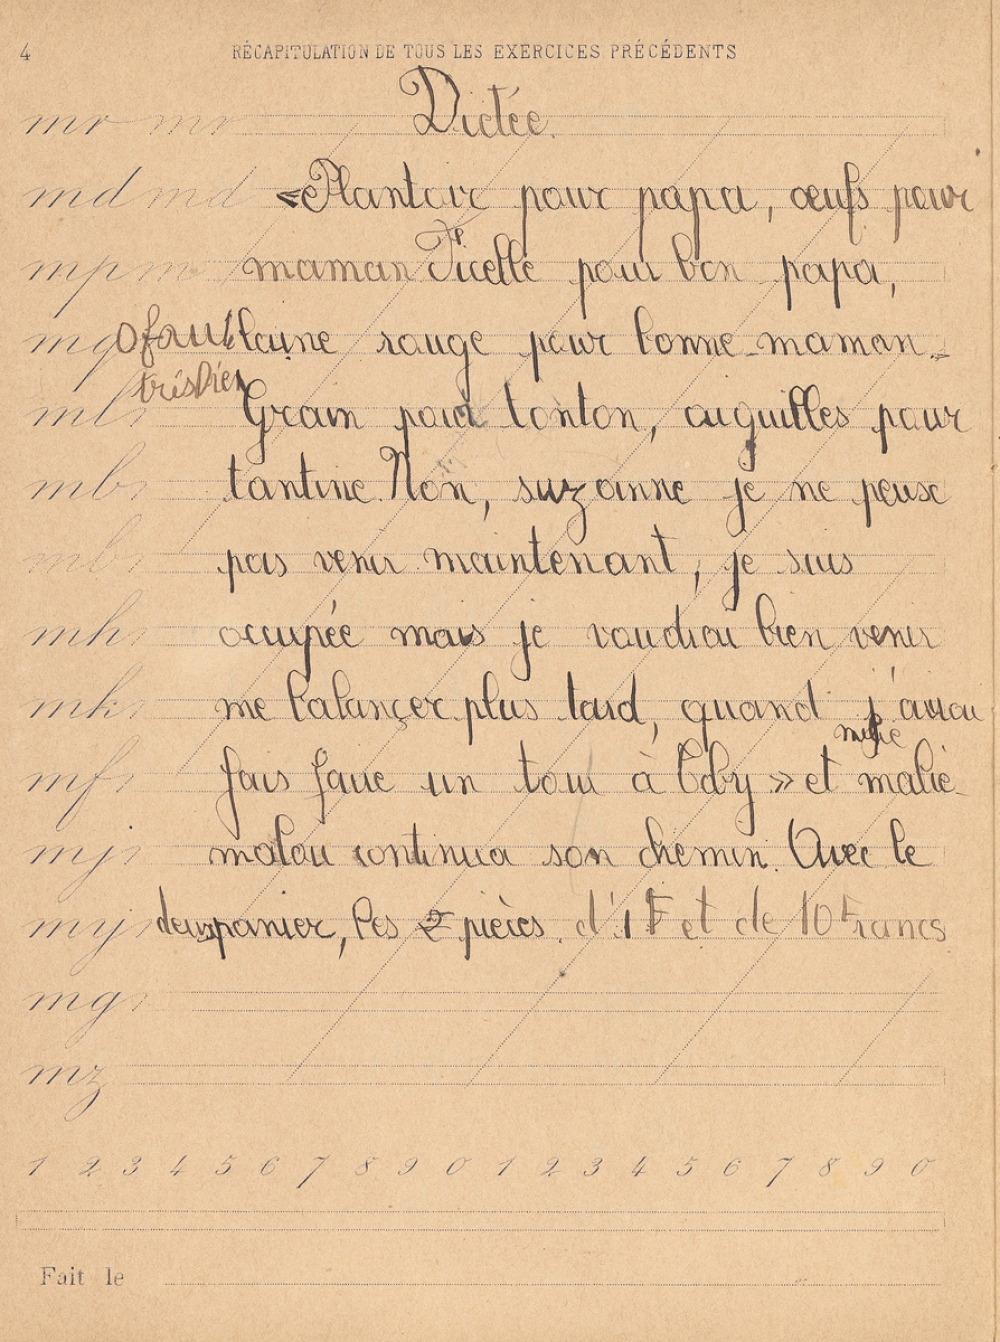 4 RÉCAPITULATION DE TOUS LES EXERCICES PRÉCÉDENTS
mr mr Dictée.
md md «Plantoir pour papa, œufs pour
mp m maman Ficelle pour bon papa,
mq 0 faute laine rouge pour bonne-maman.
très bien
mt Grain pour tonton, aiguilles pour
mb tantine. Non, suzanne je ne peuse
mb pas venir maintenant, je suis
mh occupée mais je voudrai bien venir
mk me balançer plus tard, quand j'aurai
mf fais faire un tour à Boby » et malie
mj malou continua son chemin. Avec le
my deux panier, les 2 pièces d'1 F et de 10 Francs
mg
mz
1 2 3 4 5 6 7 8 9 0 1 2 3 4 5 6 7 8 9 0
Fait le